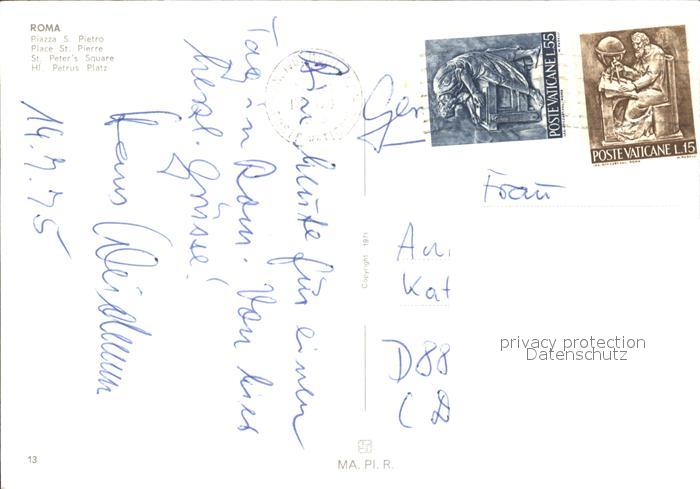 ROMA
Piazza S. Pietro
Place St. Pierre
St. Peter's Square
Hl. Petrus Platz
Bin heute für einen
Tag in Rom. Von hier
herzl. Grüsse!
Hans
14.7.75
POSTE VATICANE L.55
POSTE VATICANE L.15
Frau
Kat
D88
Copyright 1971
privacy protection
Datenschutz
13
MA. PI. R.